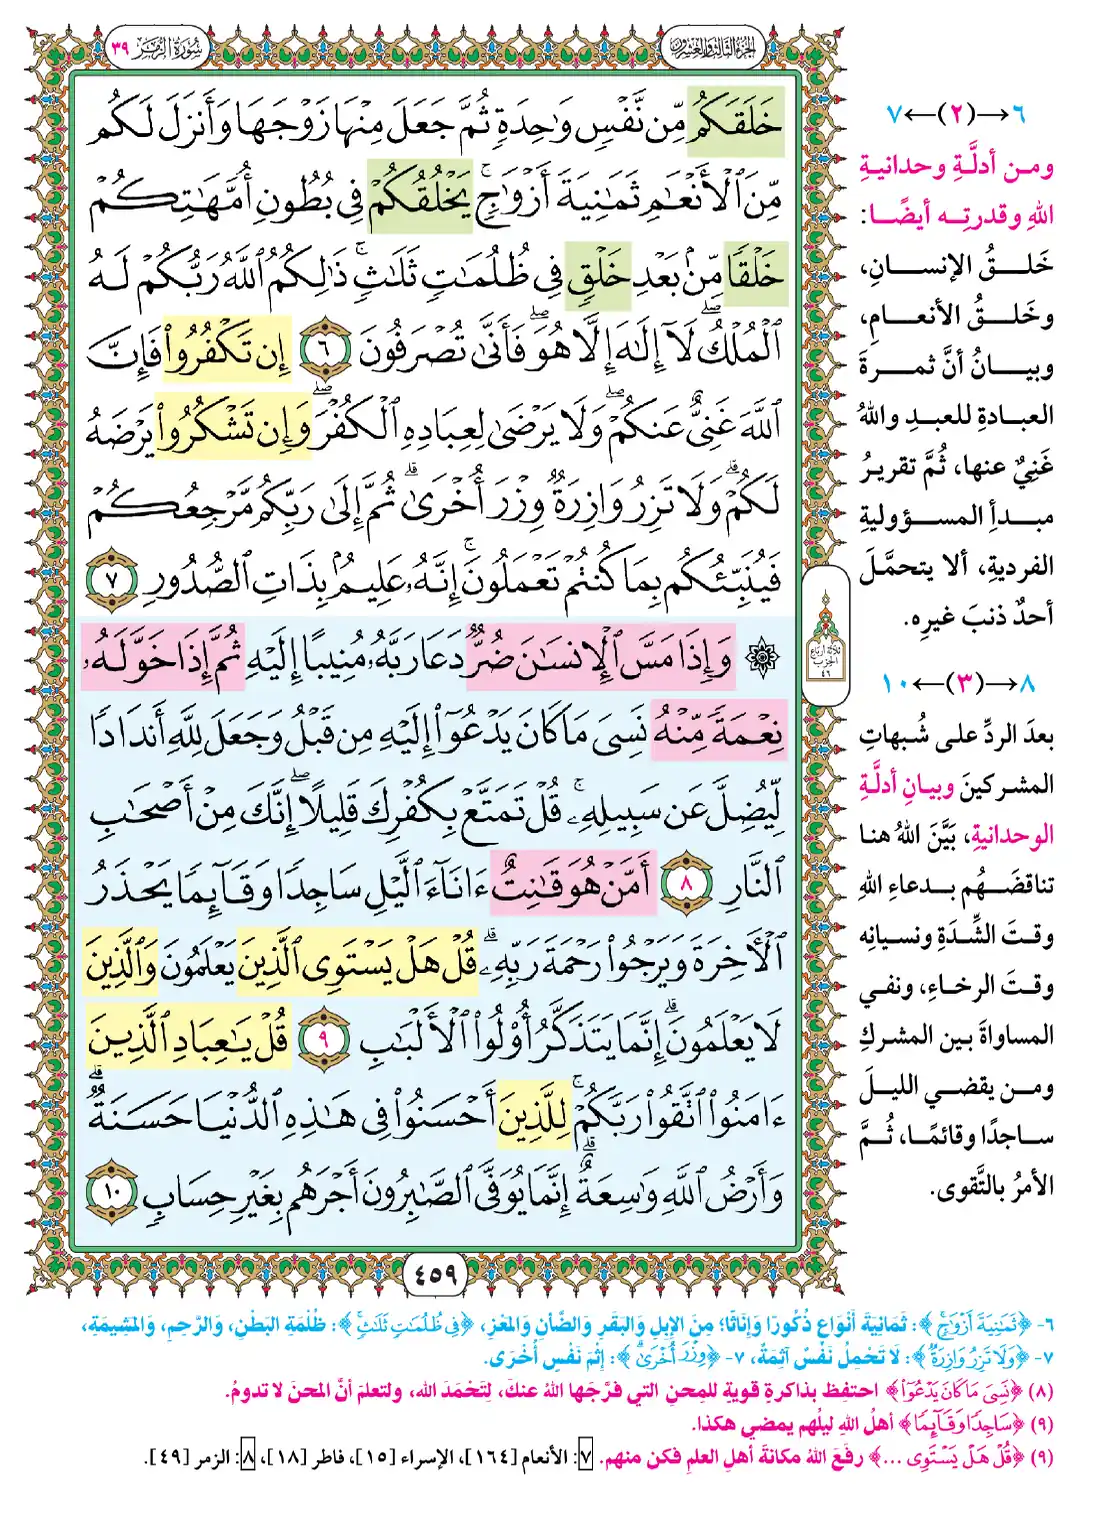 الجزء الثالث والعشرون
سورة الزمر ٣٩
خَلَقَكُم مِّن نَّفْسٍ وَٰحِدَةٍ ثُمَّ جَعَلَ مِنْهَا زَوْجَهَا وَأَنزَلَ لَكُم
مِّنَ ٱلْأَنْعَٰمِ ثَمَٰنِيَةَ أَزْوَٰجٍ ۚ يَخْلُقُكُمْ فِي بُطُونِ أُمَّهَٰتِكُمْ
خَلْقًا مِّنۢ بَعْدِ خَلْقٍ فِي ظُلُمَٰتٍ ثَلَٰثٍ ۚ ذَٰلِكُمُ ٱللَّهُ رَبُّكُمْ لَهُ
ٱلْمُلْكُ ۖ لَآ إِلَٰهَ إِلَّا هُوَ ۖ فَأَنَّىٰ تُصْرَفُونَ ٦ إِن تَكْفُرُوا۟ فَإِنَّ
ٱللَّهَ غَنِيٌّ عَنكُمْ ۖ وَلَا يَرْضَىٰ لِعِبَادِهِ ٱلْكُفْرَ ۖ وَإِن تَشْكُرُوا۟ يَرْضَهُ
لَكُمْ ۗ وَلَا تَزِرُ وَازِرَةٌ وِزْرَ أُخْرَىٰ ۗ ثُمَّ إِلَىٰ رَبِّكُم مَّرْجِعُكُمْ
فَيُنَبِّئُكُم بِمَا كُنتُمْ تَعْمَلُونَ ۚ إِنَّهُۥ عَلِيمٌۢ بِذَاتِ ٱلصُّدُورِ ٧
۞ وَإِذَا مَسَّ ٱلْإِنسَٰنَ ضُرٌّ دَعَا رَبَّهُۥ مُنِيبًا إِلَيْهِ ثُمَّ إِذَا خَوَّلَهُۥ
نِعْمَةً مِّنْهُ نَسِيَ مَا كَانَ يَدْعُوٓا۟ إِلَيْهِ مِن قَبْلُ وَجَعَلَ لِلَّهِ أَندَادًا
لِّيُضِلَّ عَن سَبِيلِهِۦ ۚ قُلْ تَمَتَّعْ بِكُفْرِكَ قَلِيلًا ۖ إِنَّكَ مِنْ أَصْحَٰبِ
ٱلنَّارِ ٨ أَمَّنْ هُوَ قَٰنِتٌ ءَانَآءَ ٱلَّيْلِ سَاجِدًا وَقَآئِمًا يَحْذَرُ
ٱلْءَاخِرَةَ وَيَرْجُوا۟ رَحْمَةَ رَبِّهِۦ ۗ قُلْ هَلْ يَسْتَوِي ٱلَّذِينَ يَعْلَمُونَ وَٱلَّذِينَ
لَا يَعْلَمُونَ ۗ إِنَّمَا يَتَذَكَّرُ أُو۟لُوا۟ ٱلْأَلْبَٰبِ ٩ قُلْ يَٰعِبَادِ ٱلَّذِينَ
ءَامَنُوا۟ ٱتَّقُوا۟ رَبَّكُمْ ۚ لِلَّذِينَ أَحْسَنُوا۟ فِي هَٰذِهِ ٱلدُّنْيَا حَسَنَةٌ ۗ
وَأَرْضُ ٱللَّهِ وَٰسِعَةٌ ۗ إِنَّمَا يُوَفَّى ٱلصَّٰبِرُونَ أَجْرَهُم بِغَيْرِ حِسَابٍ ١٠
٤٥٩
ثلاثة أرباع
الحزب
٤٦
٦→(٢)←٧
ومن أدلَّةِ وحدانيةِ
اللهِ وقدرتِه أيضًا:
خَلقُ الإنسانِ،
وخَلقُ الأنعامِ،
وبيانُ أنَّ ثمرةَ
العبادةِ للعبدِ واللهُ
غَنِيٌ عنها، ثُمَّ تقريرُ
مبدأِ المسؤوليةِ
الفرديةِ، ألا يتحمَّلَ
أحدٌ ذنبَ غيرِه.
٨→(٣)←١٠
بعدَ الردِّ على شُبهاتِ
المشركينَ وبيانِ أدلَّةِ
الوحدانيةِ، بَيَّنَ اللهُ هنا
تناقضَهُم بدعاءِ اللهِ
وقتَ الشِّدَةِ ونسيانِه
وقتَ الرخاءِ، ونفي
المساواةَ بين المشركِ
ومن يقضي الليلَ
ساجدًا وقائمًا، ثُمَّ
الأمرُ بالتَّقوى.
٦- ﴿ثَمَٰنِيَةَ أَزْوَٰجٍ﴾: ثَمَانِيَةَ أَنْوَاعٍ ذُكُورًا وَإِنَاثًا؛ مِنَ الإِبِلِ وَالبَقَرِ وَالضَّأْنِ وَالمَعْزِ، ﴿فِي ظُلُمَٰتٍ ثَلَٰثٍ﴾: ظُلْمَةِ البَطْنِ، وَالرَّحِمِ، وَالمَشِيمَةِ،
٧- ﴿وَلَا تَزِرُ وَازِرَةٌ﴾: لَا تَحْمِلُ نَفْسٌ آثِمَةٌ، ٧- ﴿وِزْرَ أُخْرَىٰ﴾: إِثْمَ نَفْسٍ أُخْرَى.
(٨) ﴿نَسِيَ مَا كَانَ يَدْعُوٓا۟﴾ احتفِظ بذاكرةٍ قويةٍ للمِحنِ التي فرَّجَها اللهُ عنكَ، لِتَحْمَدَ الله، ولتعلمَ أنَّ المحنَ لا تدومُ.
(٩) ﴿سَاجِدًا وَقَآئِمًا﴾ أهلُ اللهِ ليلُهم يمضي هكذا.
(٩) ﴿قُلْ هَلْ يَسْتَوِي ...﴾ رفَعَ اللهُ مكانةَ أهلِ العلمِ فكن منهم. ٧: الأنعام [١٦٤]، الإسراء [١٥]، فاطر [١٨]، ٨: الزمر [٤٩].